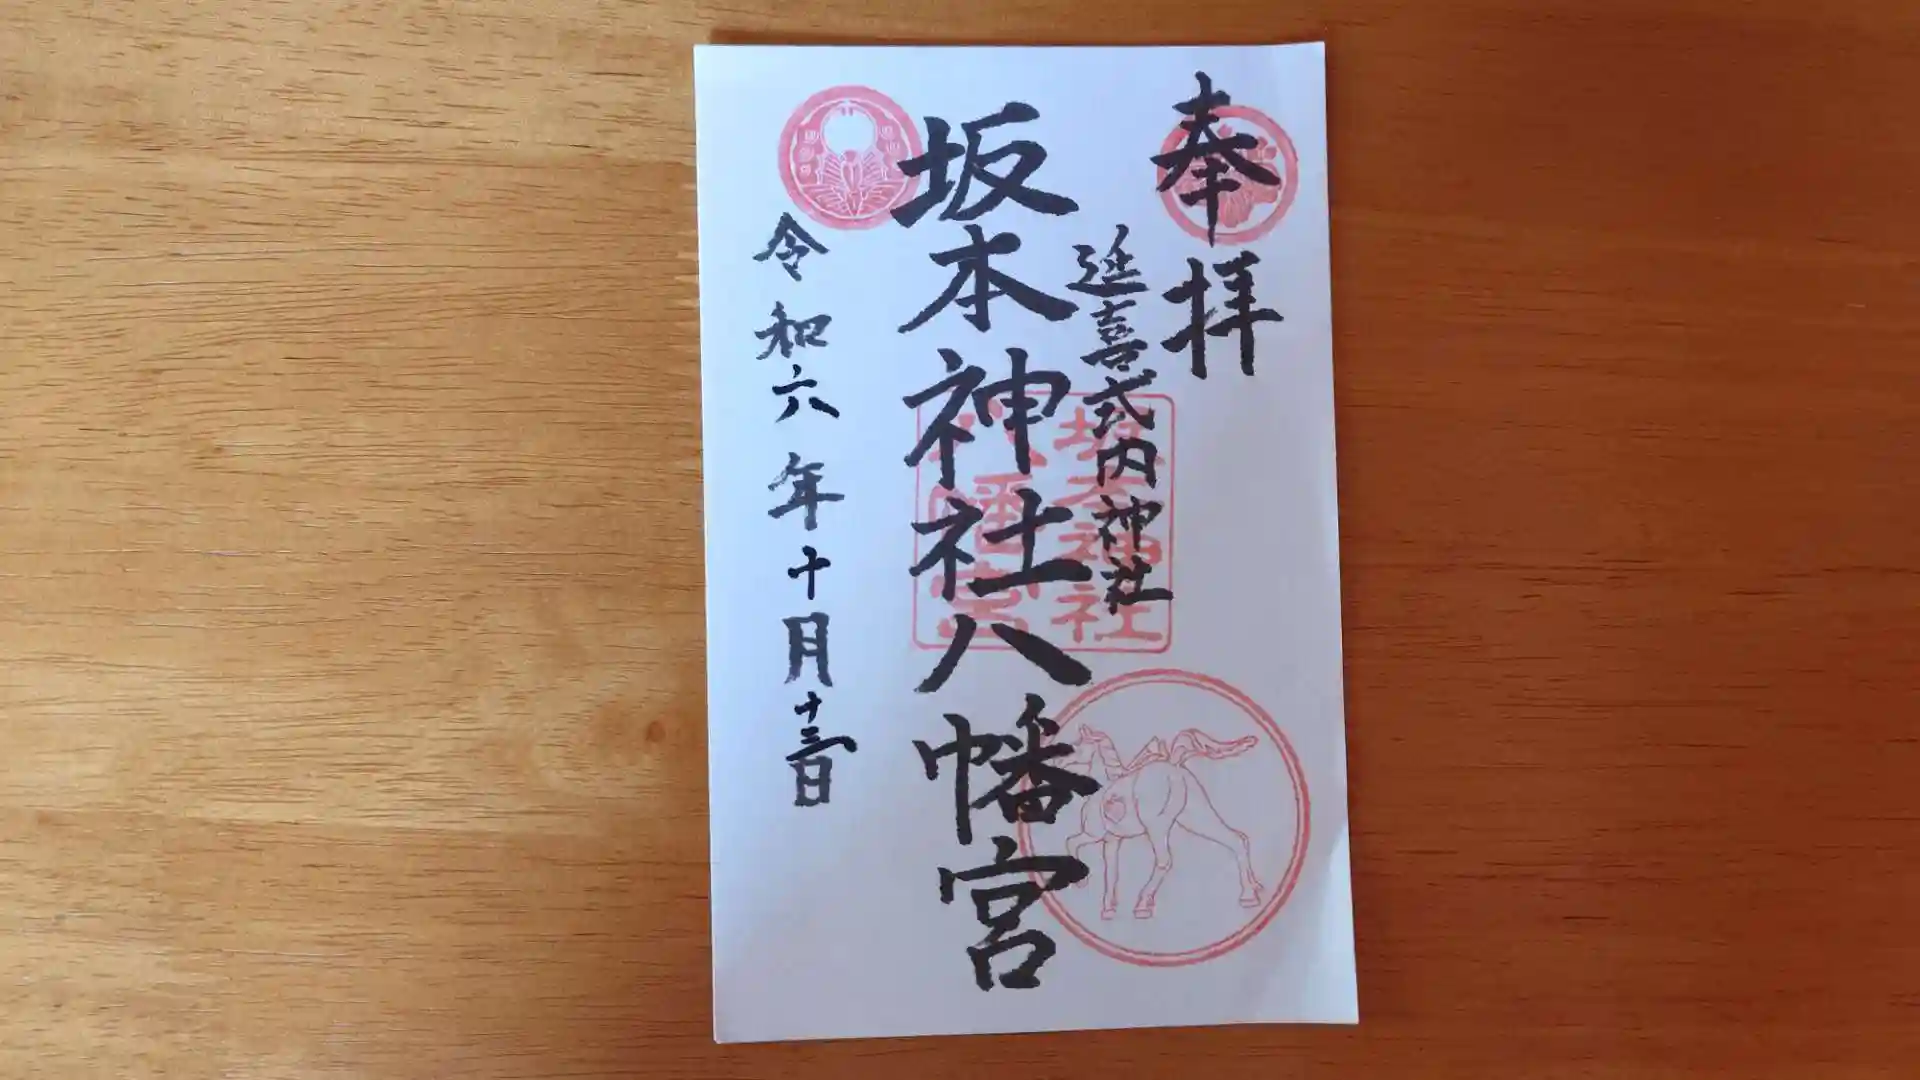 奉拝
延喜式内神社
坂本神社八幡宮
坂本神社
八幡宮
令和六年十月十三日